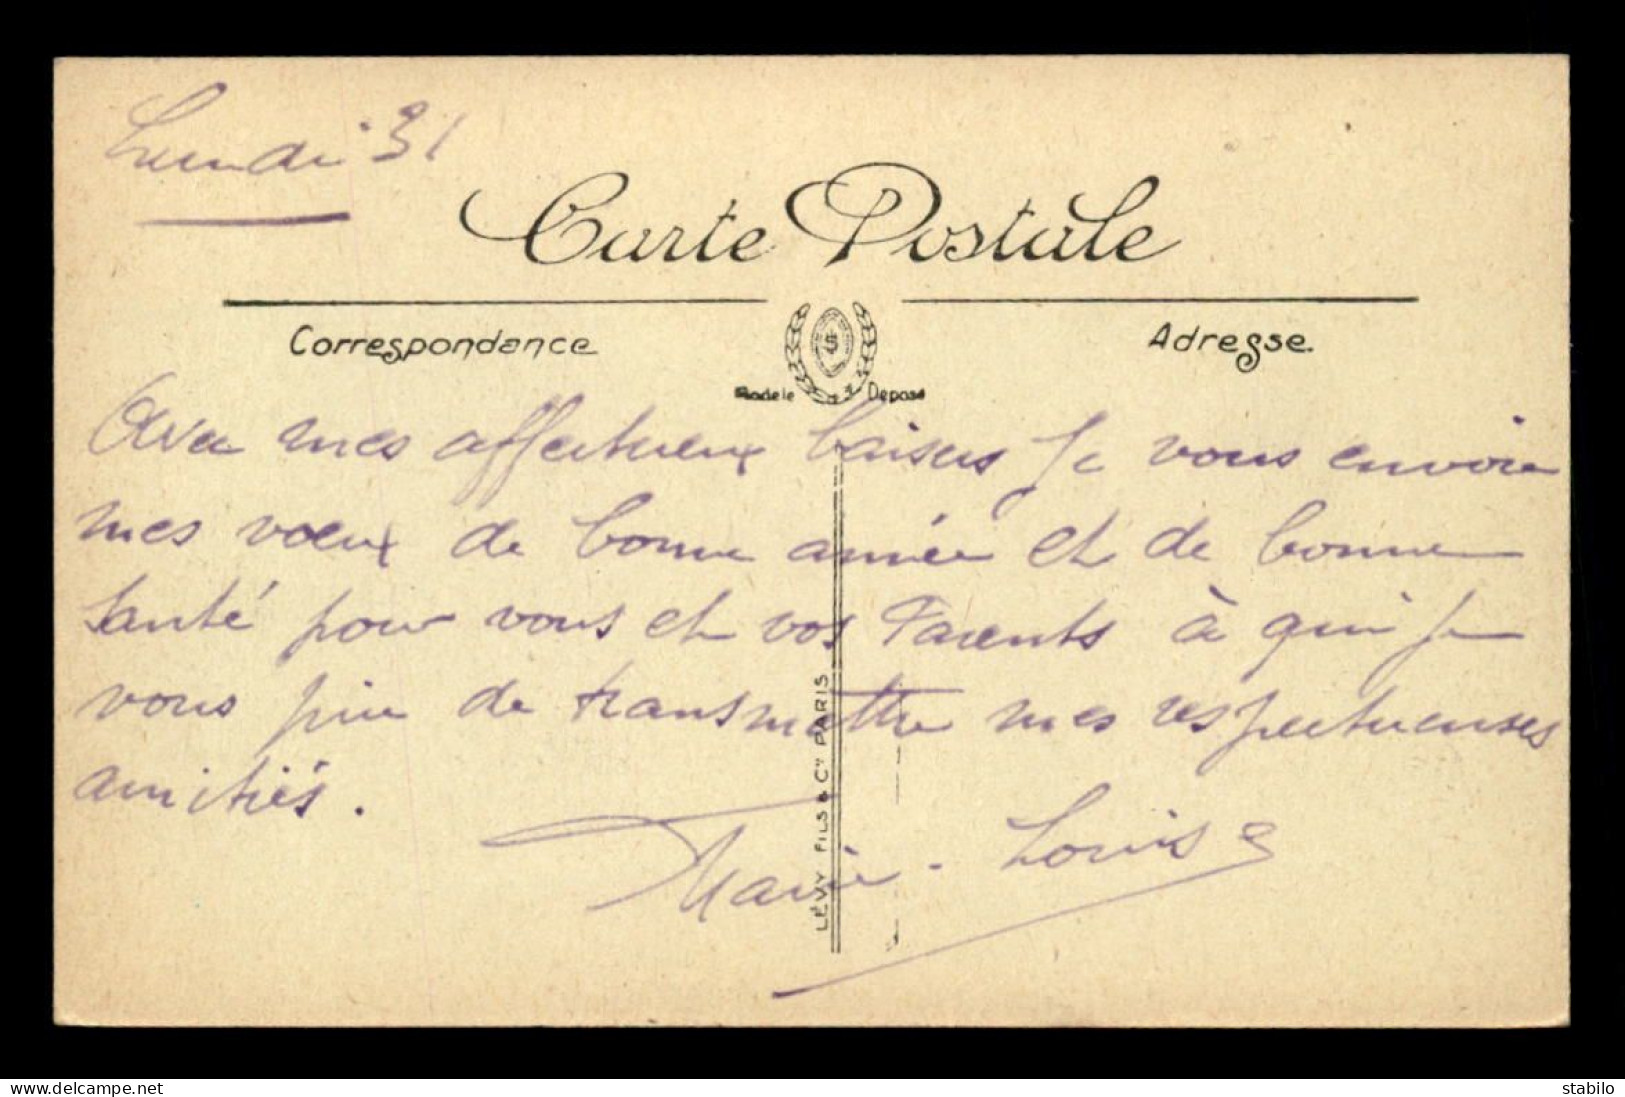 Lundi 31
Carte Postale
Correspondance
Adresse.
Modele Deposé
Avec mes affectueux baisers Je vous envoie
mes vœux de bonne année et de bonne
santé pour vous et vos Parents à qui je
vous prie de transmettre mes respectueuses
amitiés.
Marie-Louise
LÉVY FILS & Cie PARIS
www.delcampe.net
stabilo